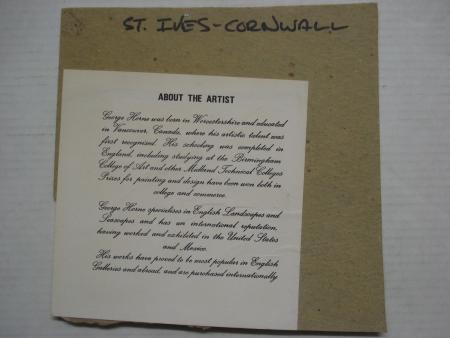 ST. IVES-CORNWALL
ABOUT THE ARTIST
George Horne was born in Worcestershire and educated
in Vancouver, Canada, where his artistic talent was
first recognised. His schooling was completed in
England, including studying at the Birmingham
College of Art and other Midland Technical Colleges
Prizes for painting and design have been won both in
college and commerce.
George Horne specialises in English Landscapes and
Seascapes and has an international reputation,
having worked and exhibited in the United States
and Mexico.
His works have proved to be most popular in English
Galleries and abroad, and are purchased internationally